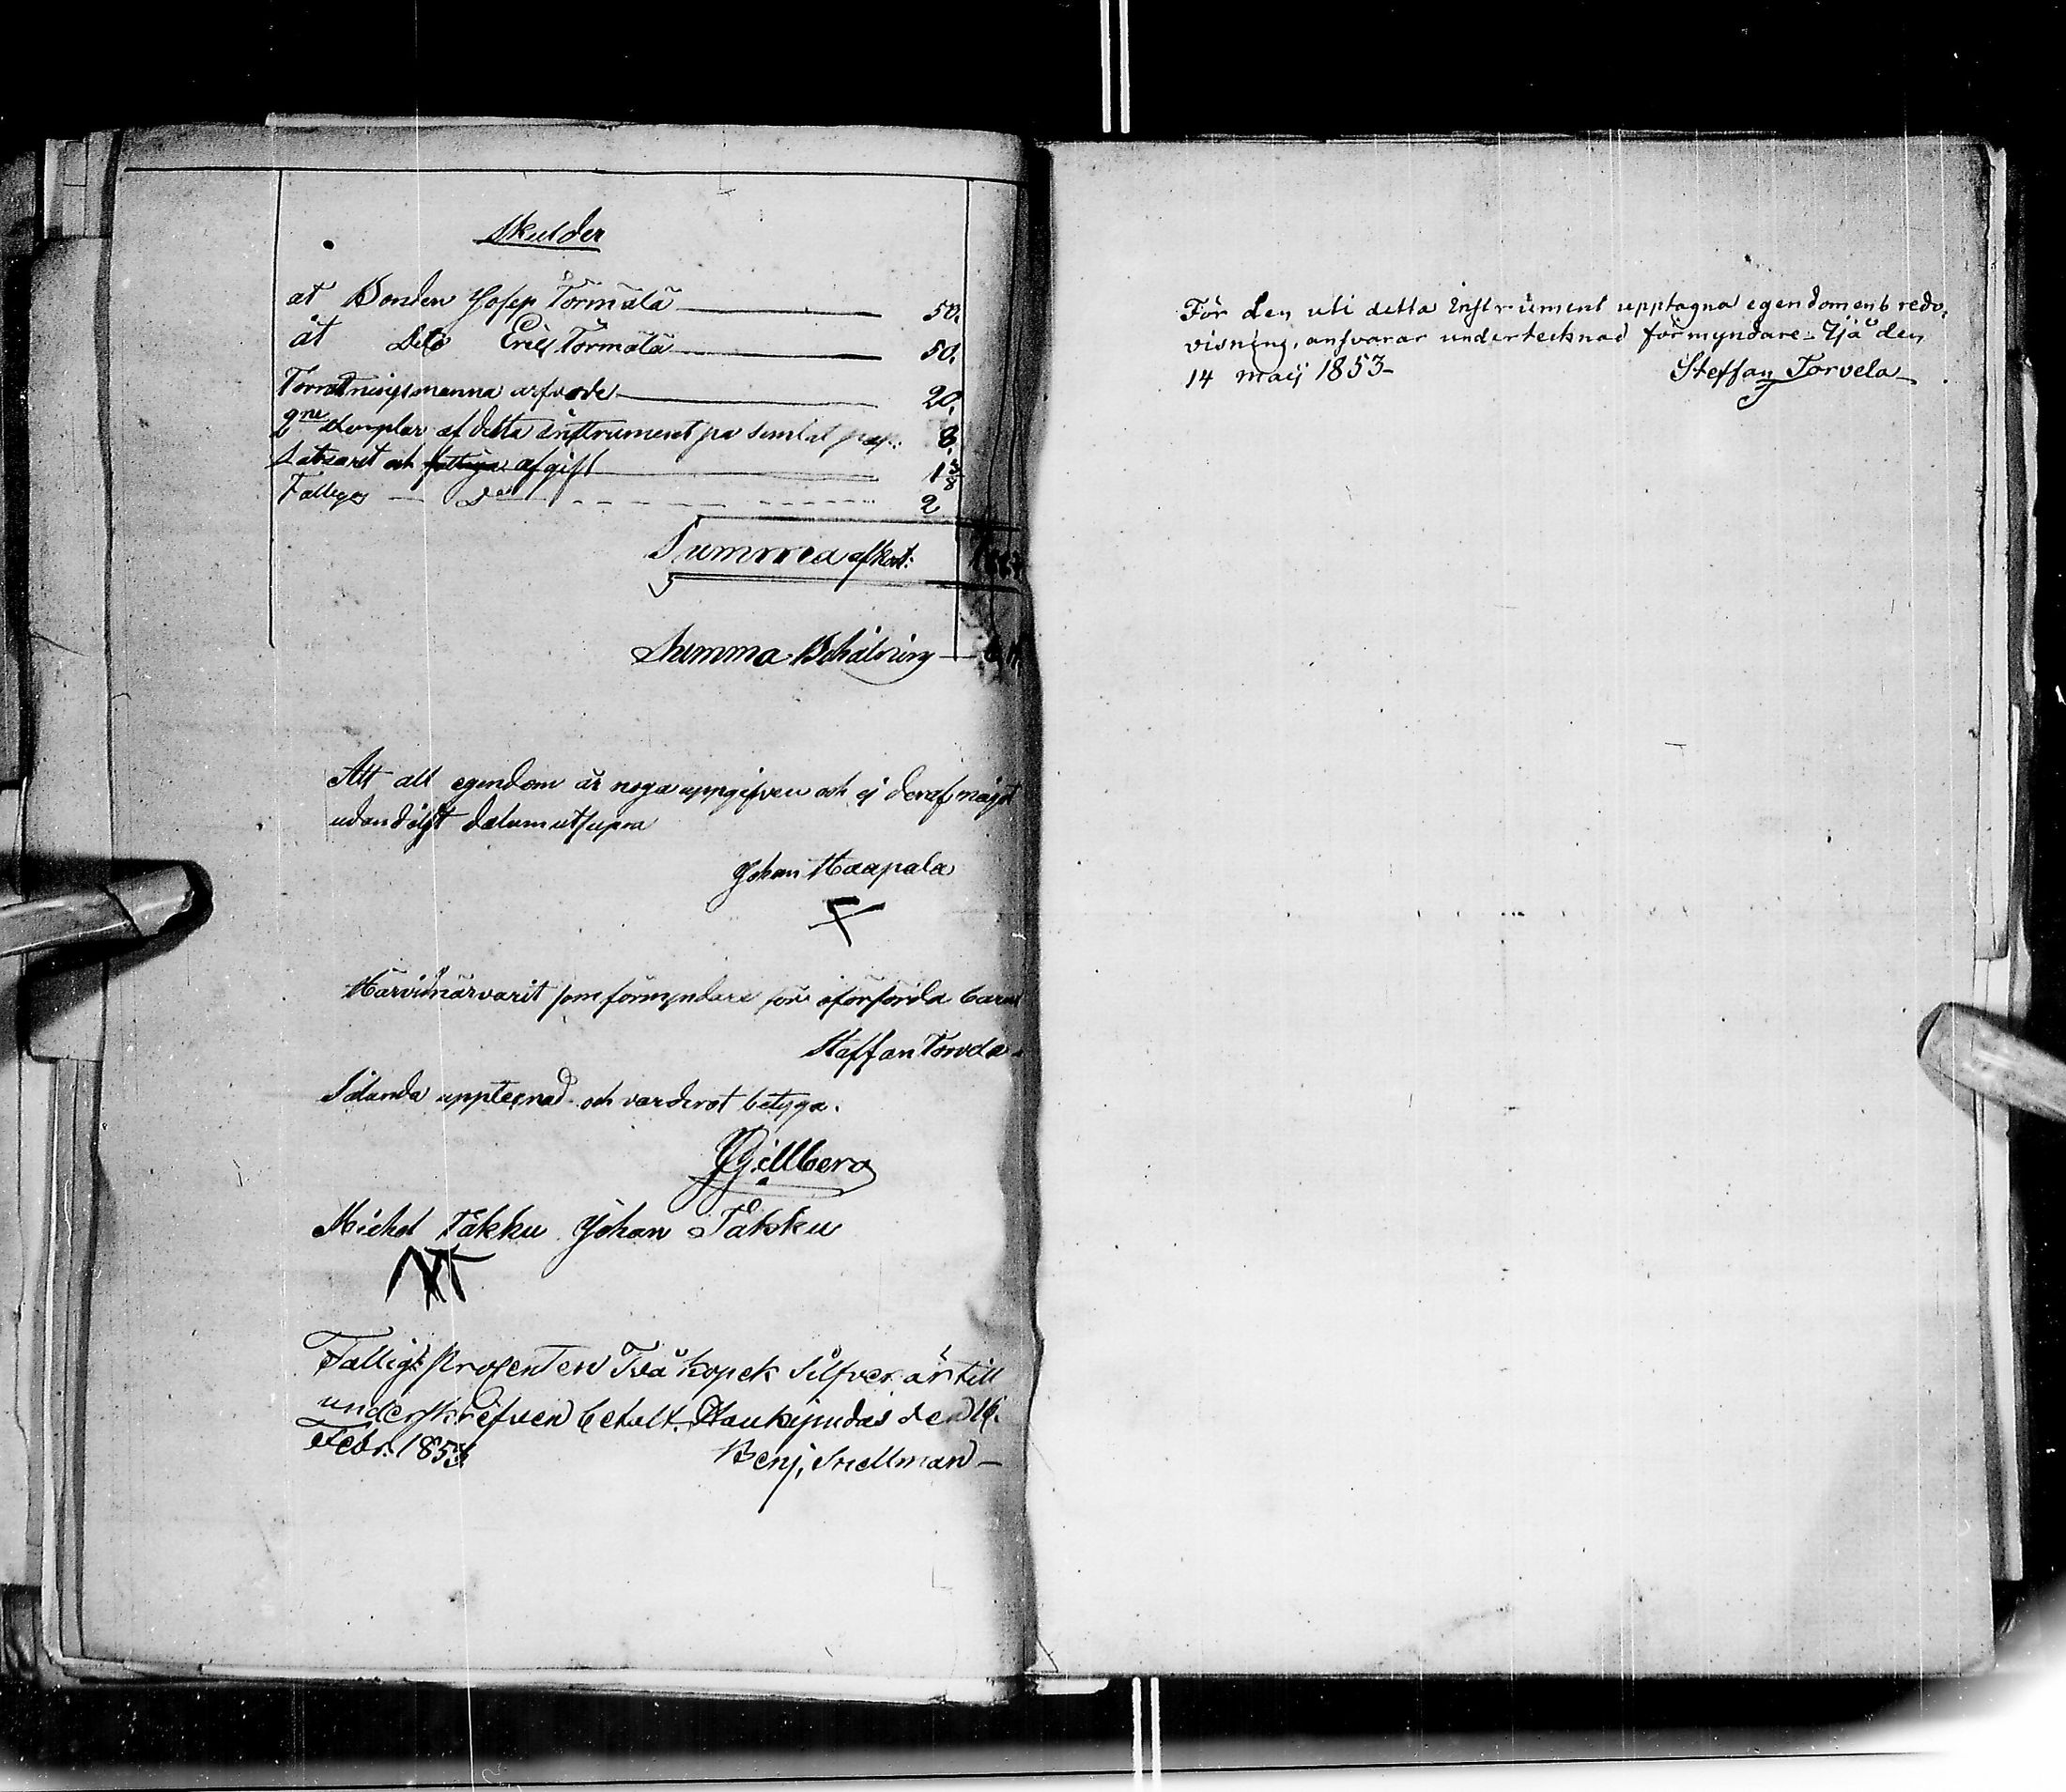 Skulder
at Bonden Josep Törmälä 50.
åt Dito Eric Törmälä 50.
Förrätningsmanna arfvode 20.
2ne Exemplar af detta Instrument på pap: 8.
och fattiga afgift 1 3/8
Fattiges do 2
Summa afkort:
Summa Behålning
Att all egendom är noga uppgifven och ej deraf något
undandölgt datum ut supra
Johan Haapala
Härvid närvarit som förmyndare för oförsörda barnet
Staffan Torvela
Sålunda upptecnad och värderat betyga.
Gillberg
Michel Takku Johan Takku
MT
Fattig Procenten Två kopek Silfver är till
underskrifven betalt. Haukipudas den 16.
Febr. 1853 Benj. Snellman
För den uti detta Instrument upptagna egendomens redo,
visning, ansvarar undertecknad förmyndare - Ijå den
14 maij 1853 - Steffan Torvela